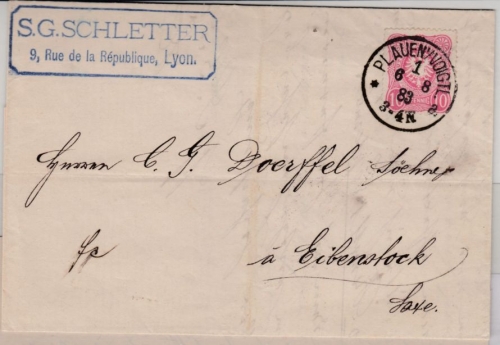 S.G.SCHLETTER
9, Rue de la République, Lyon.
PLAUEN i/VOIGTL
1
6 8
83
3-4N
10 PFENNIG 10
Herren C. G. Doerffel Soehne
fr
à Eibenstock
Saxe.